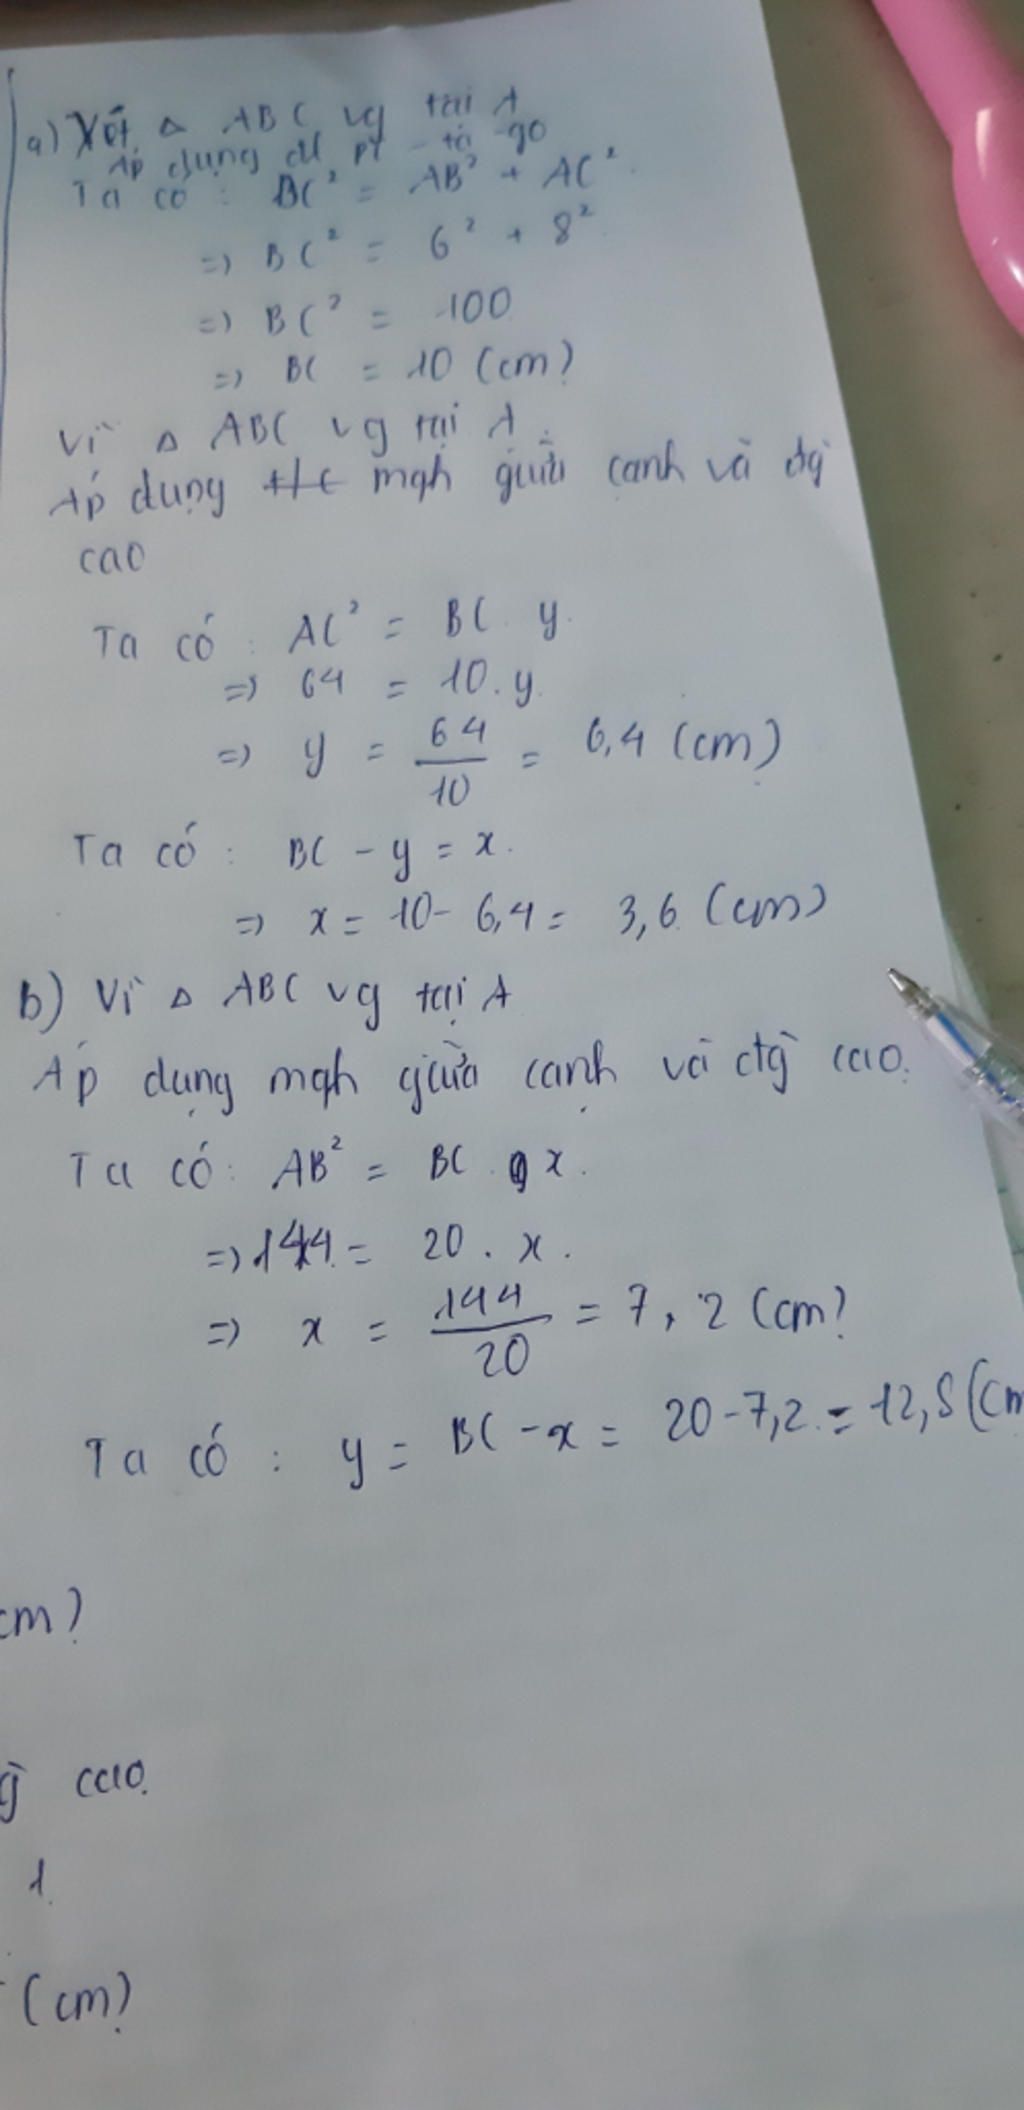 a) Xét Δ ABC vg tại A
Áp dụng đl PY - ta - go
Ta có : BC² = AB² + AC².
=> BC² = 6² + 8²
=> BC² = 100
=> BC = 10 (cm)
Vì Δ ABC vg tại A.
Áp dụng mqh giữa cạnh và đg
cao
Ta có : AC² = BC . y.
=> 64 = 10 . y.
=> y = 64/10 = 6,4 (cm)
Ta có : BC - y = x.
=> x = 10 - 6,4 = 3,6 (cm)
b) Vì Δ ABC vg tại A
Áp dụng mqh giữa cạnh và đg cao.
Ta có : AB² = BC . x.
=> 144 = 20 . x.
=> x = 144/20 = 7,2 (cm)
Ta có : y = BC - x = 20 - 7,2 = 12,8 (cm
cm)
g cao.
1.
(cm)